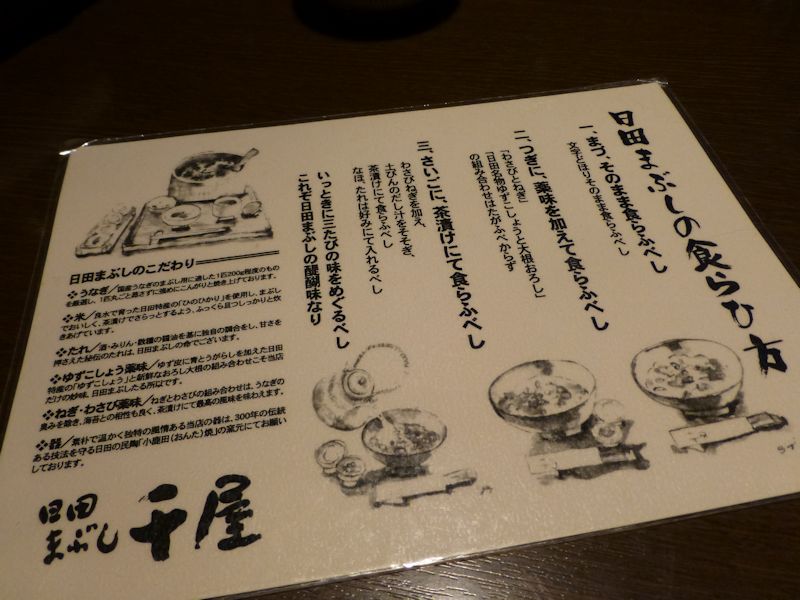 日田まぶしの食らひ方
一、まづ、そのまま食らふべし
文字どほりそのまま食らふべし
二、つぎに、薬味を加えて食らふべし
「わさびとねぎ」
「日田名物ゆずこしょうと大根おろし」
の組み合わせはたがふべからず
三、さいごに、茶漬けにて食らふべし
わさびねぎを加え、
土びんのだし汁をそそぎ、
茶漬けにて食らふべし
なほ、たれは好みにて入れるべし
いっときに三たびの味をめぐるべし
これぞ日田まぶしの醍醐味なり
日田まぶしのこだわり
❖うなぎ／国産うなぎのまぶし用に適した1匹200g程度のもの
を厳選し、1匹丸ごと蒸さずに強めにこんがりと焼き上げております。
❖米／良水で育った日田特産の「ひのひかり」を使用し、まぶし
でおいしく、茶漬けでさらっとするよう、ふっくら且つしっかりと炊
きあげています。
❖たれ／酒・みりん・数種の醤油を基に独自の調合をし、甘さを
押さえた秘伝のたれは、日田まぶしの命でございます。
❖ゆずこしょう薬味／ゆず皮に青とうがらしを加えた日田
特産の「ゆずこしょう」と新鮮なおろし大根の組み合わせこそ当店
だけの妙味、日田まぶしたる所以です。
❖ねぎ・わさび薬味／ねぎとわさびの組み合わせは、うなぎの
臭みを除き、海苔との相性も良く、茶漬けにて最高の風味を味わえます。
❖器／素朴で温かく独特の風情ある当店の器は、300年の伝統
ある技法を守る日田の民陶「小鹿田(おんた)焼」の窯元にてお願い
しております。
日田
まぶし
千屋